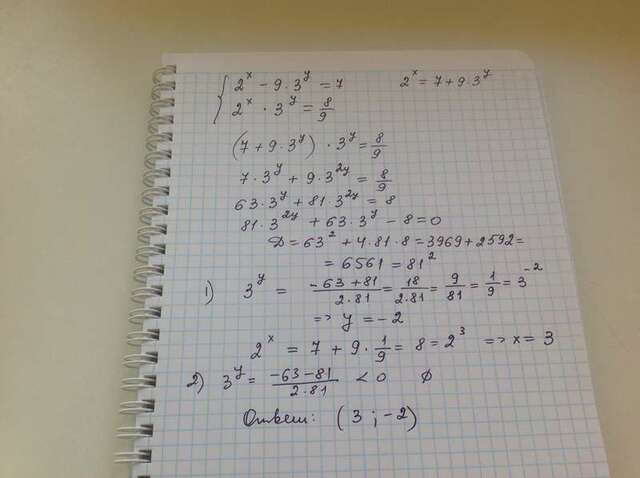 2^x − 9·3^y = 7    2^x = 7 + 9·3^y
2^x · 3^y = 8/9
(7 + 9·3^y) · 3^y = 8/9
7·3^y + 9·3^2y = 8/9
63·3^y + 81·3^2y = 8
81·3^2y + 63·3^y − 8 = 0
D = 63^2 + 4·81·8 = 3969 + 2592 =
= 6561 = 81^2
1) 3^y = (−63 + 81)/(2·81) = 18/(2·81) = 9/81 = 1/9 = 3^−2
=> y = −2
2^x = 7 + 9·1/9 = 8 = 2^3 => x = 3
2) 3^y = (−63 − 81)/(2·81) < 0 ∅
Ответ: (3 ; −2)